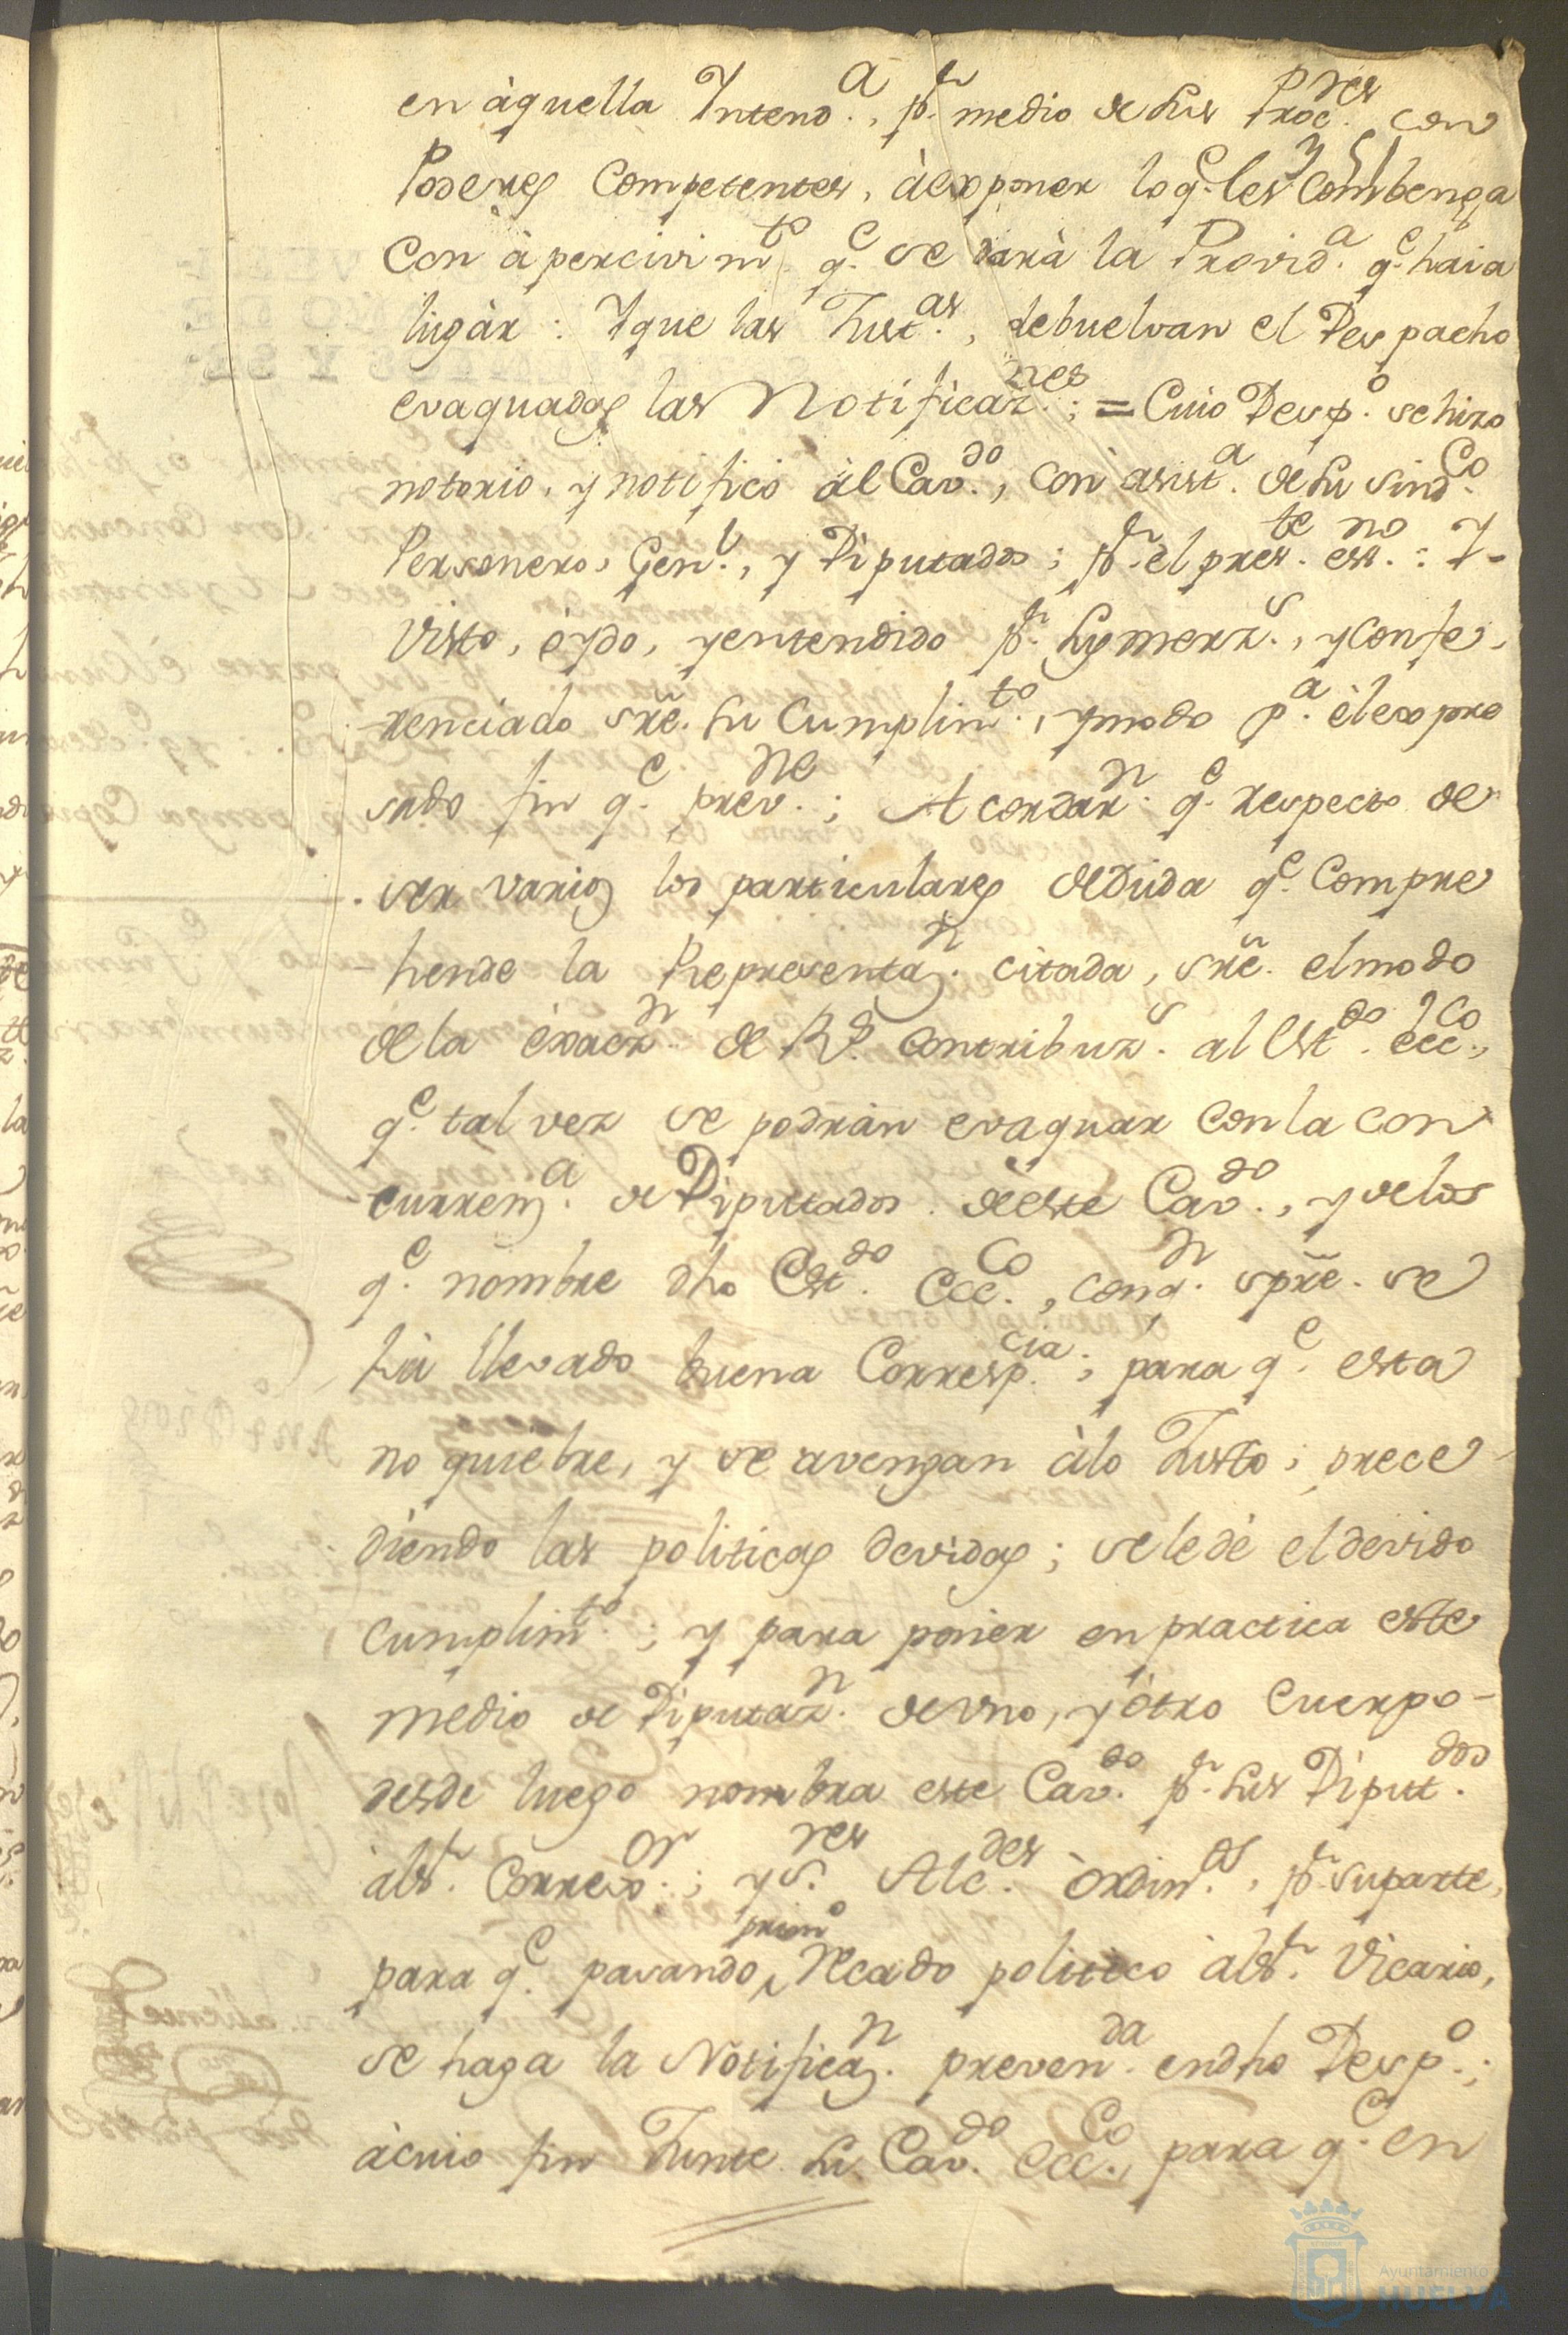 en àquella Yntend.ª, p.r medio de sus Proc.res con
Poderes Competentes, àexponer lo q.e les Combenga
Con àpercivim.to q.e se darà la Provid.a q.e haia
lugàr : Yque las Just.as, debuelvan el Despacho
evaquadas las Notificaz.nes; = Cuio Desp.o se hizo
notorio, y notificò àl Cav.do, con asist.a de su Sind.co
Personero, Gen.l, y Diputados; p.r el pres.te es.no : Y-
Visto, òydo, yentendido p.r sus merz.s, yConfe,
renciado sre. su Cumplim.to, ymodo p.a èlexpre
sado fin q.e prev.ne; Acordar.n q.e respecto de
ser varios los particulares deduda q.e Compre
hende la Representaz.n citada, sre. elmodo
dela èxacz.n de R.s Contribuz.s al Est.do ecc.co,
q.e tal vez se podràn evaquar Conla con
currenz.a de Diputados deeste Cav.do, ydelos
q.e nombre dho Est.do Ecc.co, conq.n spre. se
hà llevado buena Corresp.cia; para q.e esta
no quiebre, y se avengan àlo Justo; prece
diendo las politicas devidas; seledè eldevido
Cumplim.to; y para poner enpractica este
medio de Diputaz.n deuno, yòtro Cuerpo-
desde luego nombra este Cav.do p.r sus Diput.dos
àlS.r Correx.or; yS.res Alc.des Òrdin.os, p.r suparte,
para q.e pasando prim.o Recado politico àlS.r Vicario,
se haga la Notificaz.n preven.da endho Desp.o;
àcuio fin Junte su Cav.do Ecc.co, para q.e en
Ayuntamiento de
HUELVA